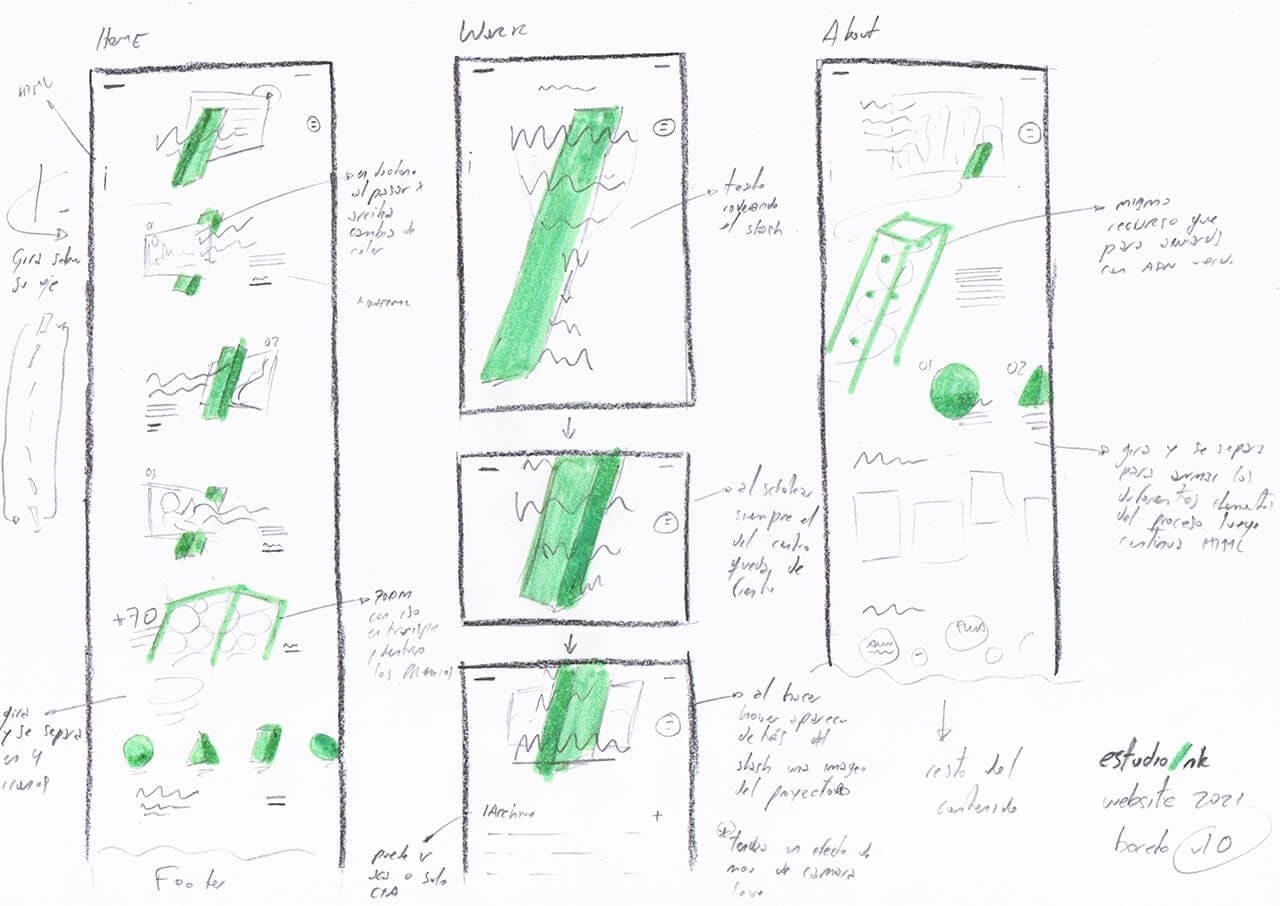 Home
Work
About
HTML
Gira sobre
su eje
al pasar x
arriba
cambia de
color
01
02
03
+70
zoom
y dentro
los premios
gira
y se separa
en 4
iconos
Footer
texto
rodeando
el slash
al scrolear
siempre el
del centro
queda de
frente
al hacer
hover aparece
detrás del
slash una imagen
del proyecto
tendra un efecto de
mov de camara
leve
/Archivo
+
puede ir
aca o solo
CTA
mismo
recurso que
para
con ADN
01
02
gira y se separa
para armar los
diferentes elementos
del proceso luego
continua HTML
resto del
contenido
estudio/nk
website 2021
boceto v10